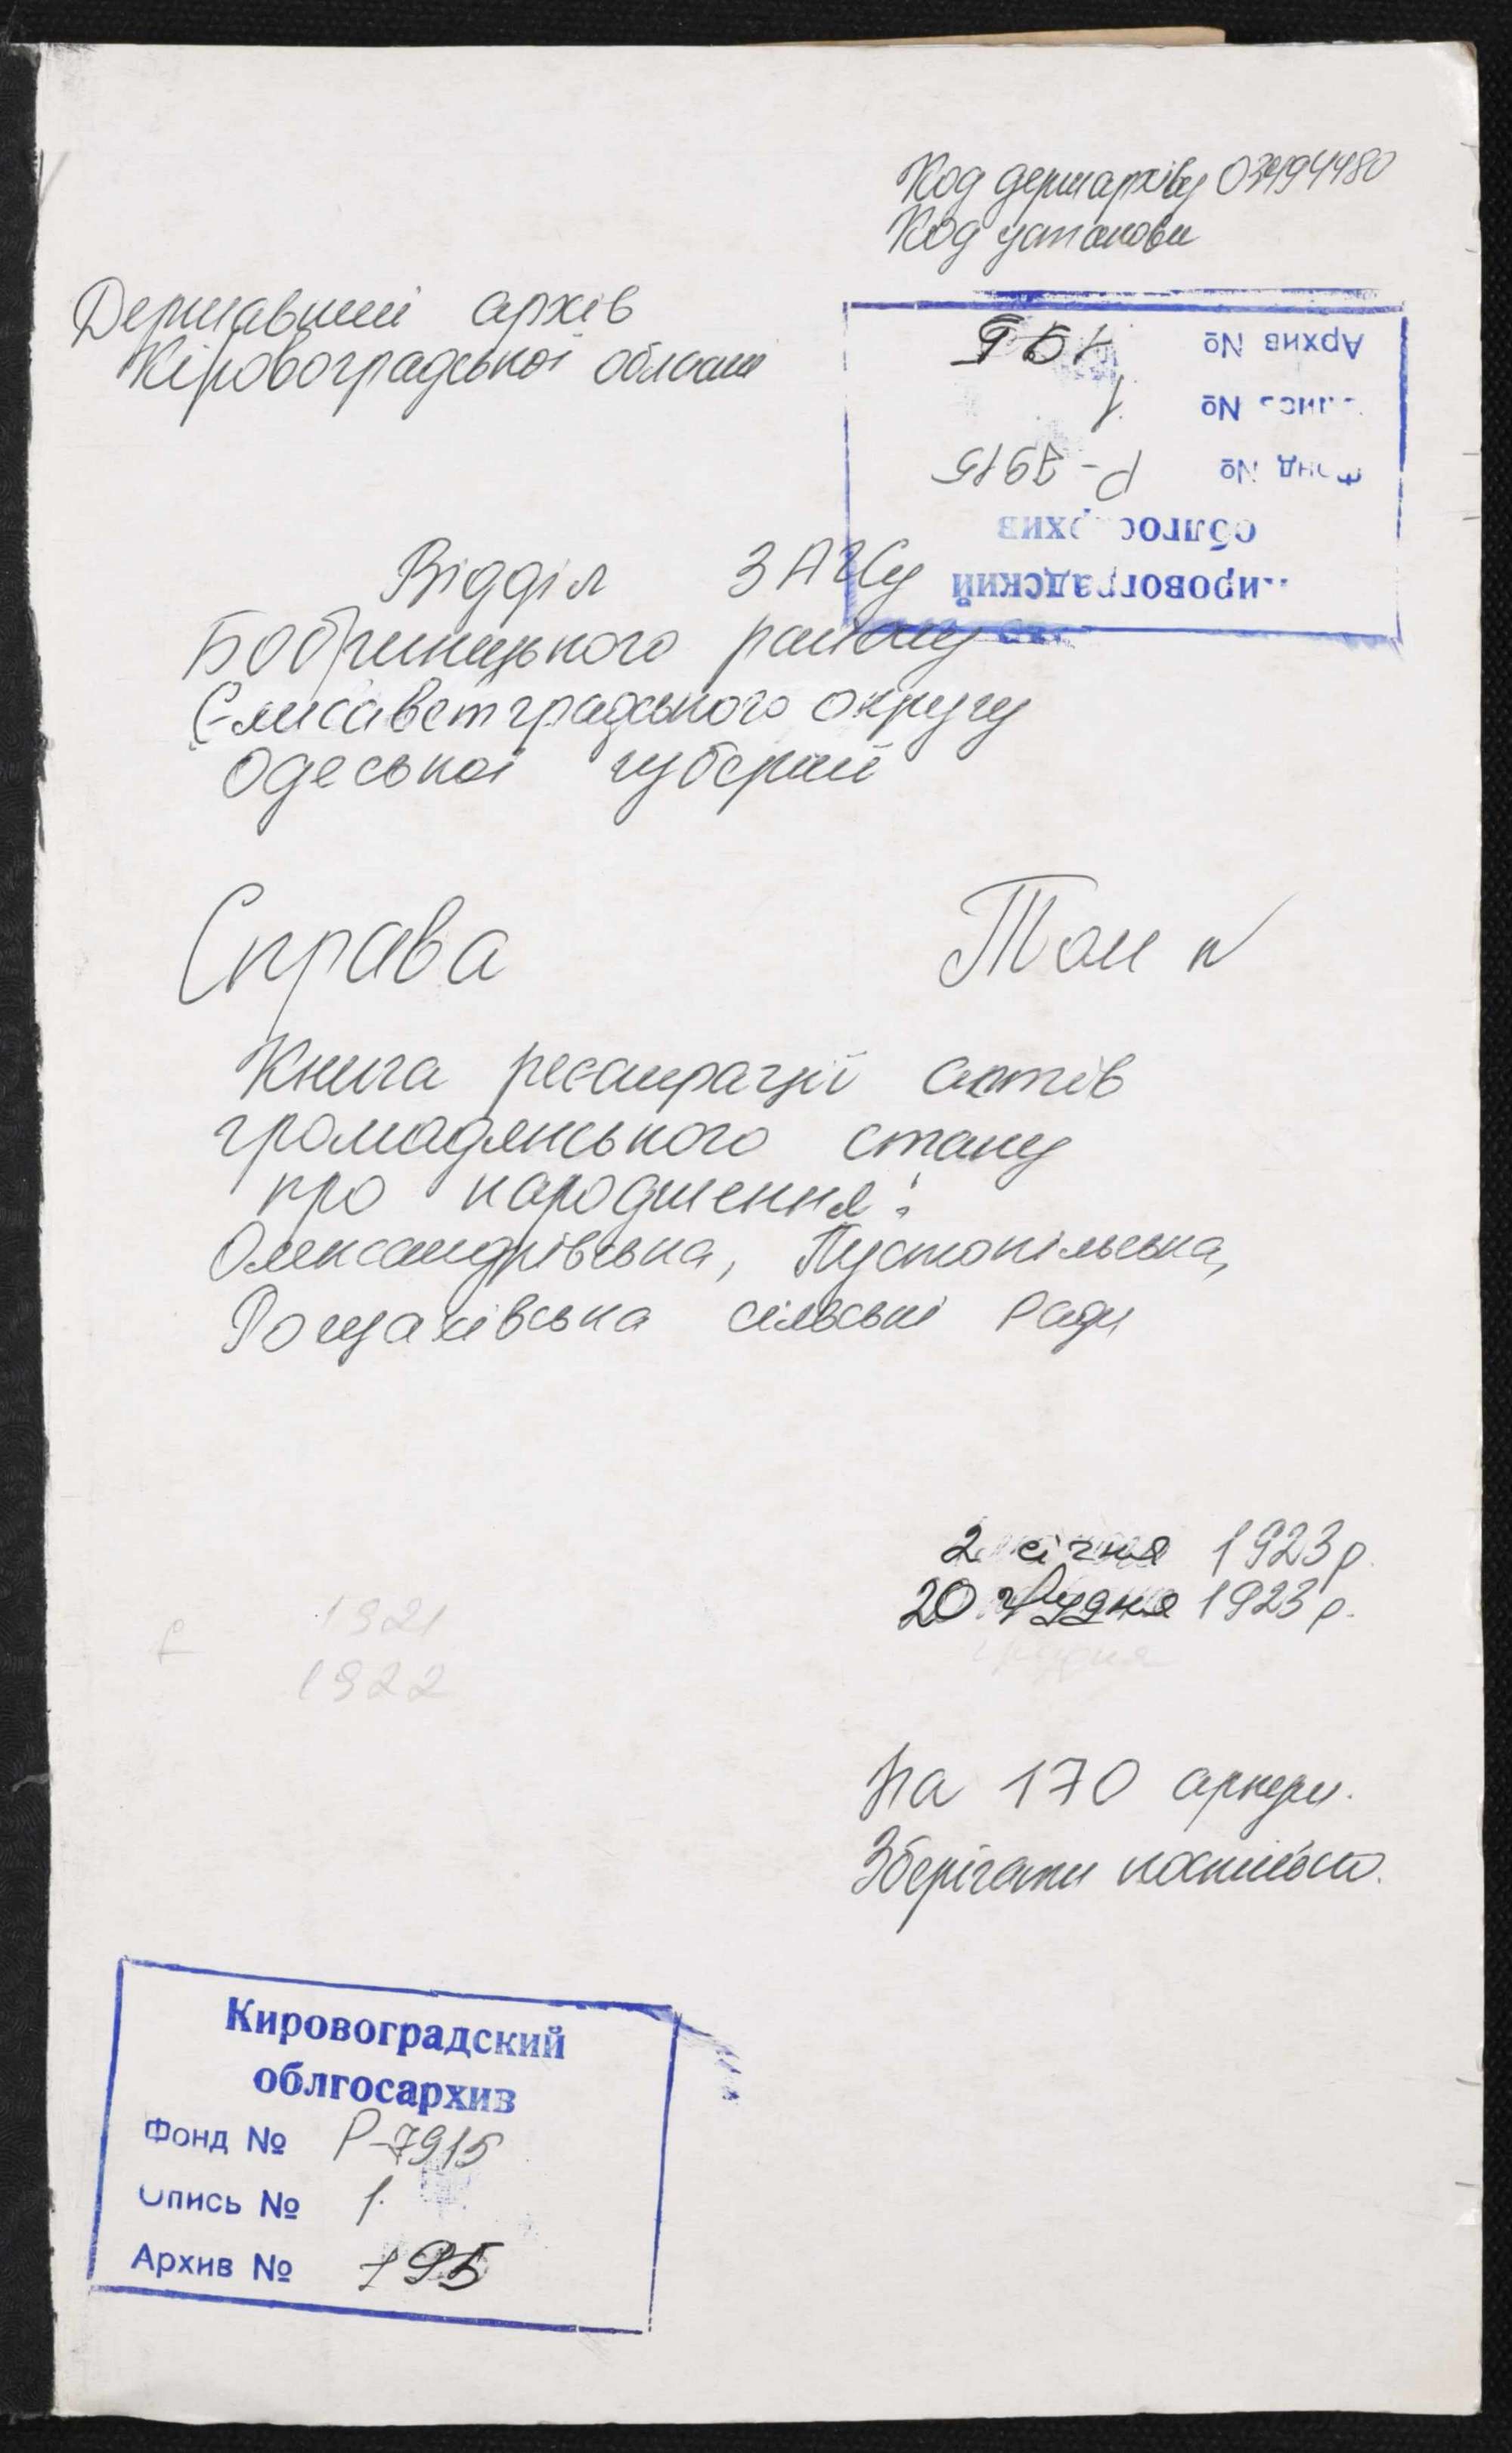 Код держархіву 03494480
Код установи
Державний архів
Кіровоградської області
Архив № 195
Опись № 1
Фонд № Р-7915
облгосархив
Кировоградский
Відділ ЗАГСу
Бобринецького району
Єлисаветградського округу
Одеської губернії
Справа Том №
Книга реєстрації актів
громадянського стану
про народження:
Олександрівська, Пустопільська,
Рощахівська сільські Ради
2 січня 1923 р.
20 грудня 1923 р.
грудня
1921
1922
На 170 аркуш.
Зберігати постійно.
Кировоградский
облгосархив
Фонд № Р-7915
Опись № 1.
Архив № 195